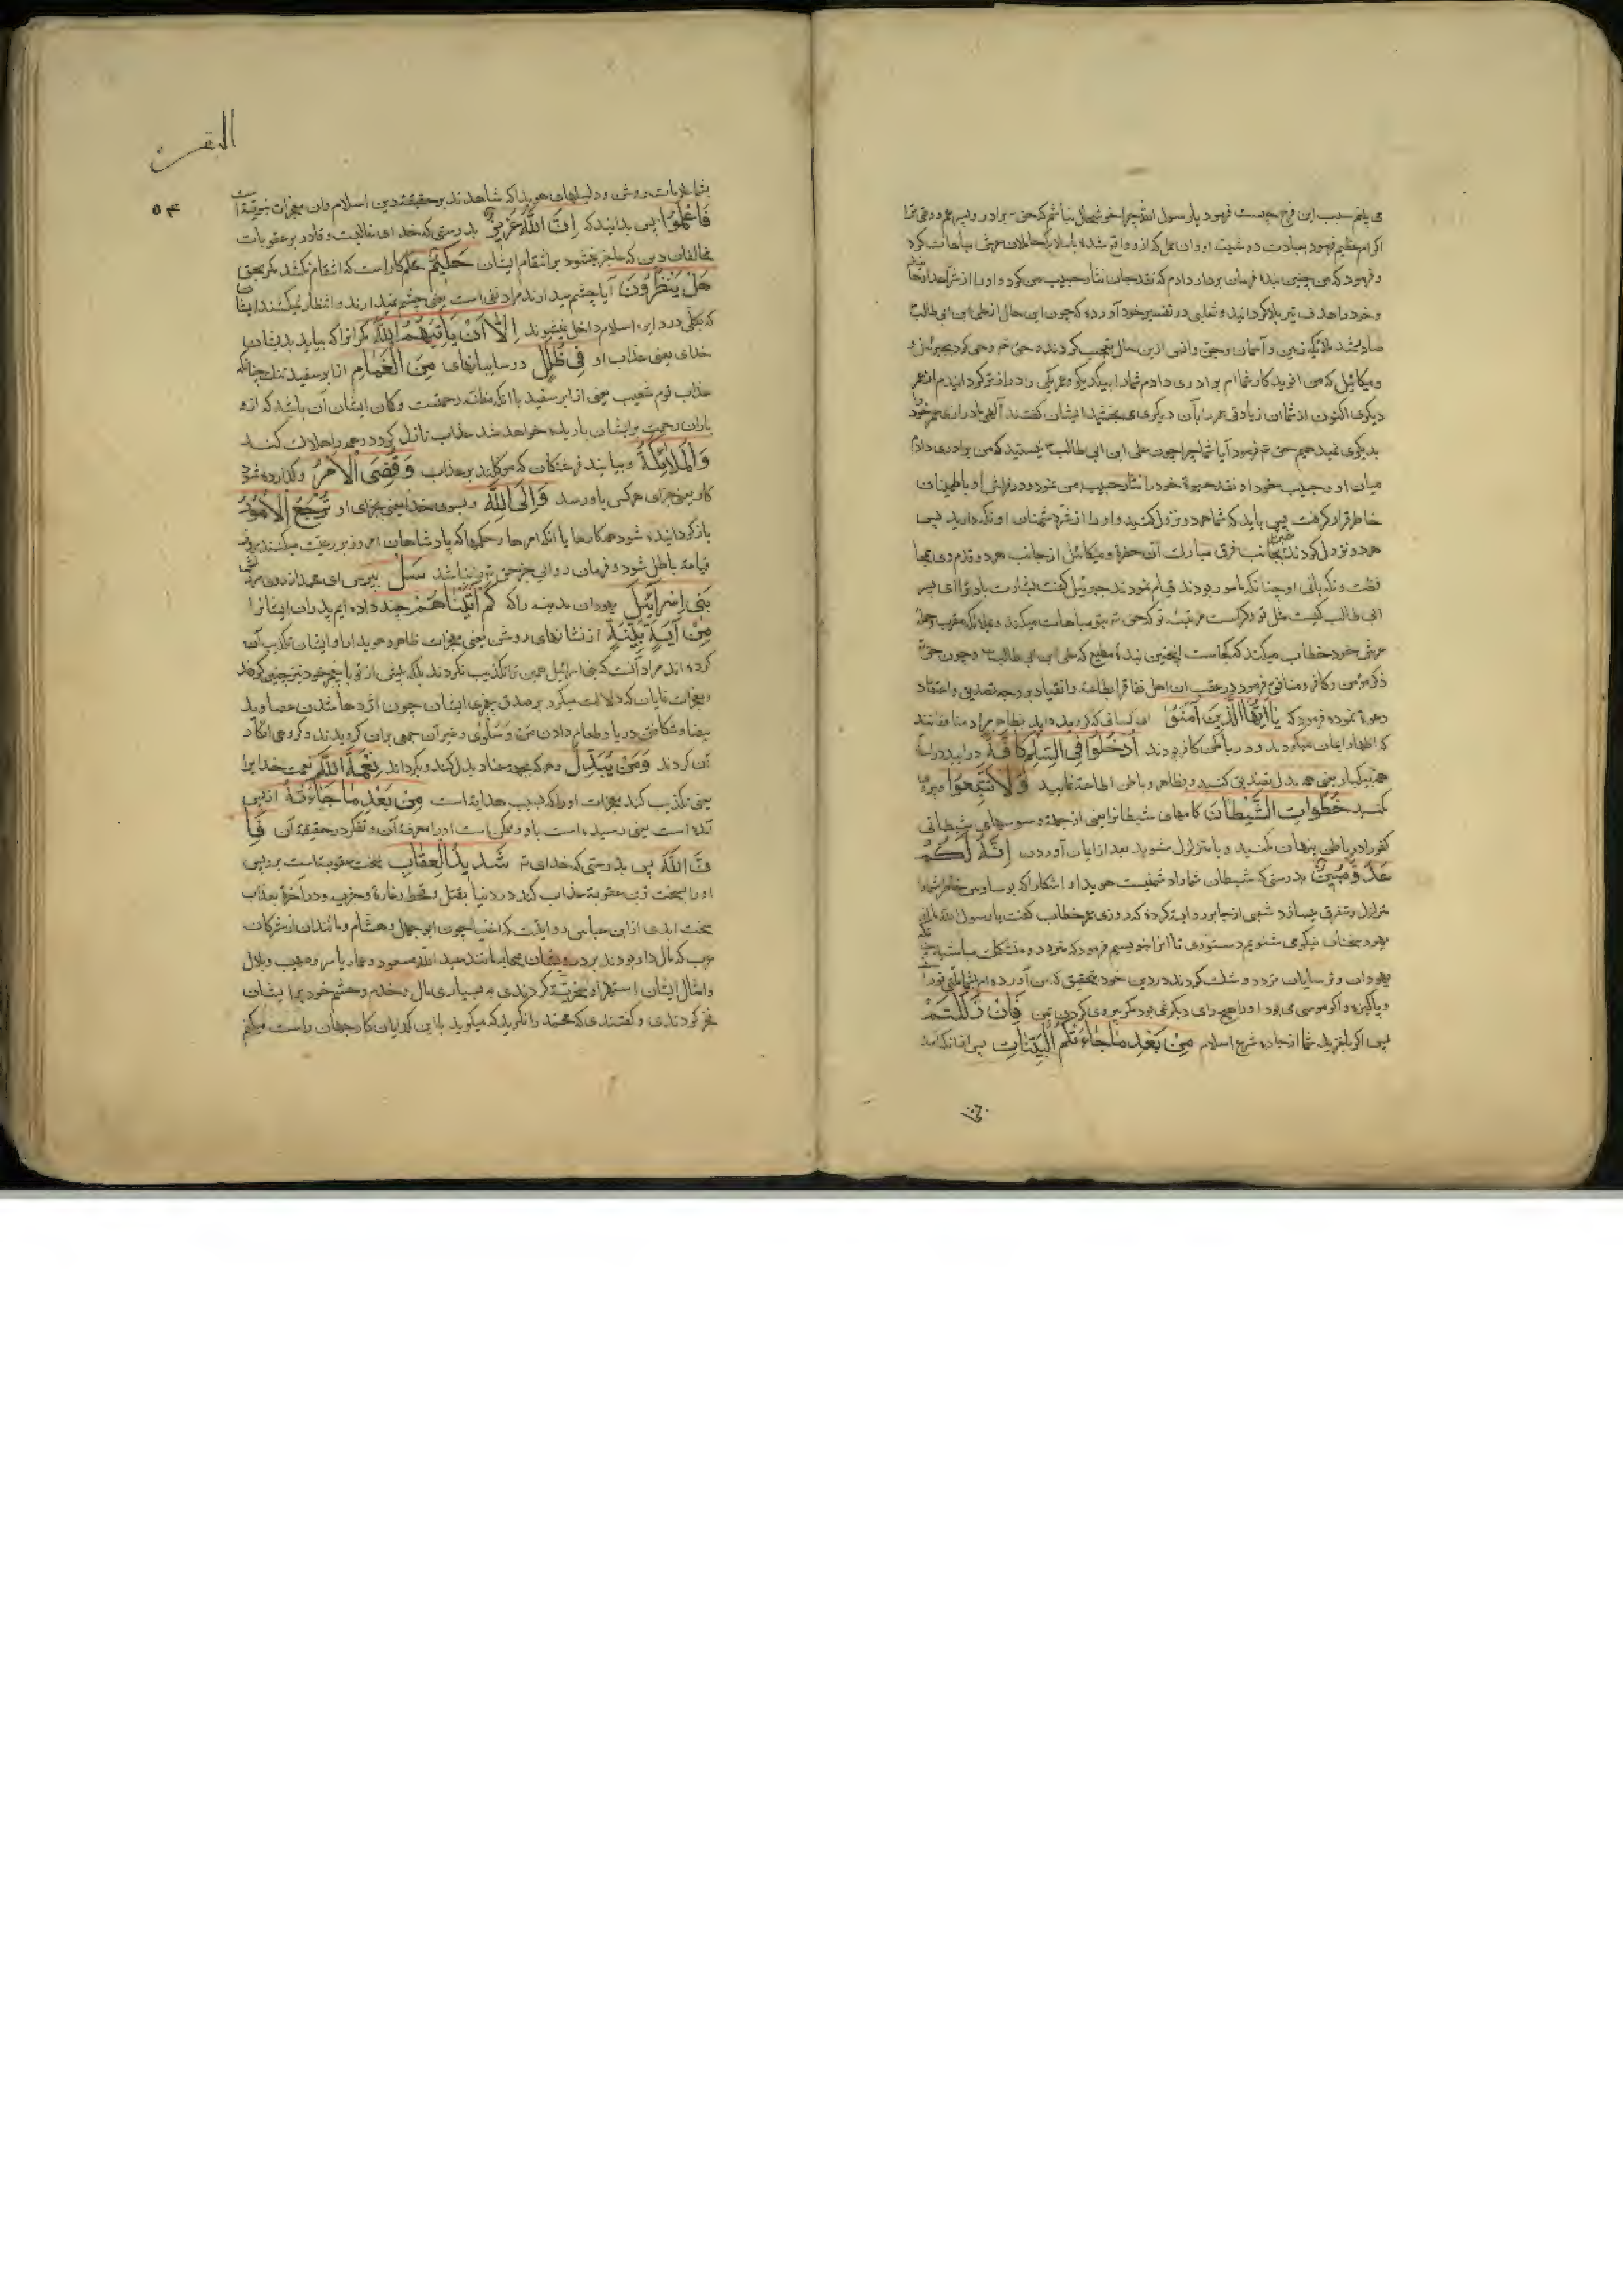 می یابم سبب این فرح چیست فرمود یا رسول الله چرا خوشحال نباشم که حق برادر و پسر عم
اکرام عظیم فرمود بعبادت دوشینه او وان عمل که ازو واقع شده با ملائکه حاملان عرش مباهات کرد
و فرمود که من چنین بنده فرمان بردار دارم که نقد جان نثار حبیب من کرد و او را از شر اعدا
و خود را هدف تیر بلا گردانید و ثعلبی در تفسیر خود آورده که چون این حال از علی ابن ابی طالب
صادر شد ملائکه زمین و آسمان و جن و انس ازین حال تعجب کردند حق وحی کرد بجبرئیل و
میکائیل که من میان شما برادری دادم شما را بیکدیگر و عمر یکی را درازتر گردانیدم از عمر
دیگری اکنون از شما آن زیادتی عمر را بآن دیگری می بخشید ایشان گفتند آلهی ما درازی عمر خود
بدیگری نمیدهیم حق فرمود آیا شما چرا چون علی ابن ابی طالب نیستید که من برادری دادم
میان او و حبیب خود او نقد حیوة خود را نثار حبیب من نمود و در فراش او باطمینان
خاطر قرار گرفت پس باید که شما هر دو نزول کنید و او را از شر دشمنان او نگه دارید پس
هر دو نزول کردند جبرئیل بجانب فرق مبارک آن حضرة و میکائیل از جانب هر دو قدم وی بمحا
فظت و نگهبانی او چنانکه مامور بودند قیام نمودند جبرئیل گفت بشارت باد ترا ای پسر
ابی طالب کیست مثل تو و کراست مرتبه تو که حق بتو مباهات میکند و بملائکه مقرب و حمله
عرش خود خطاب میکند که کجاست اینچنین بنده مطیع که علی ابن ابی طالب و چون حق
ذکر مؤمن و کافر و منافق فرمود در عقب ان اهل نفاق را بطاعة و انقیاد بر وجه تصدیق و اعتقاد
دعوة نموده فرمود که یا ایها الذین آمنوا ای کسانی که گرویده اید بظاهر مراد منافقانند
که اظهار ایمان میکردند و در باطن کافر بودند ادخلوا فی السلم کافة درایید در
همه بیکبار یعنی همه بدل تصدیق کنید و بظاهر و باطن اطاعة نمایید ولا تتبعوا
مکنید خطوات الشیطان کامهای شیطانرا یعنی از جمله وسوسهای شیطانی
کفر را در باطن پنهان مکنید و یا متزلزل مشوید بعد از ایمان آوردن انه لکم
عدو مبین بدرستی که شیطان شما را دشمنیست هویدا و اشکارا که بوساوس خاطر شما را
متزلزل و متفرق میسازد شعبی از جابر روایة کرده که روزی عمر خطاب گفت یا رسول الله ما از
یهود سخنان نیکو می شنویم دستوری تا انرا بنویسیم فرمود که متردد و متشکک مباشید
یهودان و ترسایان تردد و شک کردند در دین خود بتحقیق که من آورده ام بشما ملتی نورا
و پاکیزه و اکر موسی می بود او را هیچ رای دیگر نمی بود مگر پیروی کردن بمن فان زللتم
پس اکر بلغزید شما از جاده شرع اسلام من بعد ما جاءتکم البینات پس از انکه آمد
البقرة
۵۴
بشما علامات روشن و دلیلهای هویدا که شاهدند بر حقیقة دین اسلام وان معجزات
فاعلموا پس بدانید که ان الله عزیز بدرستی که خدای غالبست و قادر بر عقوبات
مخالفان دین که عاجز نشود بر انتقام ایشان حکیم حکم کار است که انتقام نکشد مگر بحق
هل ینظرون آیا چشم میدارند مراد نفی است یعنی چشم نمیدارند و انتظار نمیکشند ایشان
که بکلی در دایره اسلام داخل نمیشوند الا ان یاتیهم الله مگر انرا که بیاید بدیشان
خدای یعنی عذاب او فی ظلل در سایبانهای من الغمام از ابر سفید تنک چنانکه
عذاب قوم شعیب یعنی از ابر سفید با انکه مظنه رحمتست و کمان ایشان آن باشد که ازو
باران رحمت بر ایشان باریده خواهد شد عذاب نازل گردد و همه را هلاک کند
والملائکة و بیایند فرشتکان که موکلند بر عذاب وقضی الامر و گذارده شود
کار یعنی جزای هرکس باو رسد والی الله و بسوی خدا یعنی بجزای او ترجع الامور
باز گردانیده شود همه کارها یا انکه امرها و حکمها که پادشاهان امروز بر رعیت میکنند
قیامة باطل شود و فرمان روایی جز حق را نباشد سل بپرس ای محمد
بنی اسرائیل یهودان مدینه را که کم آتیناهم چند داده ایم پدران ایشانرا
من آیة بینة از نشانهای روشن یعنی معجزات ظاهر و هویدا را و ایشان تکذیب آن
کرده اند مراد آنست که بنی اسرائیل همین ترا تکذیب نکردند بلکه پیش از تو با پیغمبر خود نیز چنین کردند
و معجزات نمایان که دلالت میکرد بر صدق پیغمبری ایشان چون اژدها شدن عصا و ید
بیضا و شکافتن دریا و طعام دادن من و سلوی و غیر آن جمعی بدان گرویدند و گروهی انکار
آن کردند ومن یبدل و هرکه بجهة عناد بدل کند و بگرداند نعمة الله نعمت خدا یرا
یعنی تکذیب کند معجزات او را که سبب هدایة است من بعد ما جاءته از پس
آمده است یعنی رسیده است باو و ممکن است او را معرفة آن و تفکر در حقیقة آن فا
ن الله پس بدرستی که خدای شدید العقاب سخت عقوبتست بر وی
او را بسخت ترین عقوبة عذاب کند در دنیا بقتل و قحط و غارة و حرب و در آخرة بعذاب
سخت ابدی از ابن عباس روایتست که اغنیا چون ابو جهل و هشام و مانند ان از مشرکان
عرب که مال دار بودند بر درویشان صحابه مانند عبد الله مسعود و عمار یاسر و صهیب و بلال
و امثال ایشان استهزاء و سخریة کردندی و به بسیاری مال و خدم و حشم خود بر ایشان
فخر کردندی و گفتندی که محمد را نگرید که میگوید با این گدایان کار جهان راست میکنم